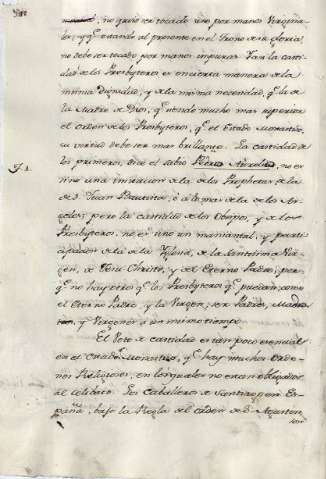 no quiso ser tocado sino por manos Virgina-
les, y qe. estando al presente en el Trono de su gloria
no debe ser tocado por manos impuras. Tan la casti-
dad de los Presbyteros es en cierta manera de la
misma Dignidad, y de la misma necesidad, qe. la de
la Madre de Dios, qe. siendo mucho mas superior
el orden de los Presbyteros, qe. el Estado Monastico,
su virtud debe ser mas brillante. La castidad de
los primeros, dice el sabio Pedro, no es
sino una imitacion de la de los Prophetas, de la
de S. Juan Bautista, ò à lo mas de la de los An-
geles; pero la castidad de los Obispos, y de los
Presbyteros, no es sino un manantial, y parti-
cipacion de la de la Iglesia, de la Santisima Vir-
gen, de Jesu Christo, y del Eterno Padre; por-
qe. no hay otro qe. los Presbyteros qe. puedan, como
el Eterno Padre, y la Virgen, ser Padres, Madres
y Virgenes à un mismo tiempo.
El Voto de castidad es tan poco esencial
en el Estado Monastico, qe. hay muchos Orde-
nes Religiosos, en los quales no eran obligados
al celibato. Los Caballeros de Santiago en Es-
paña, bajo la Regla del Orden de S. Agustin
son